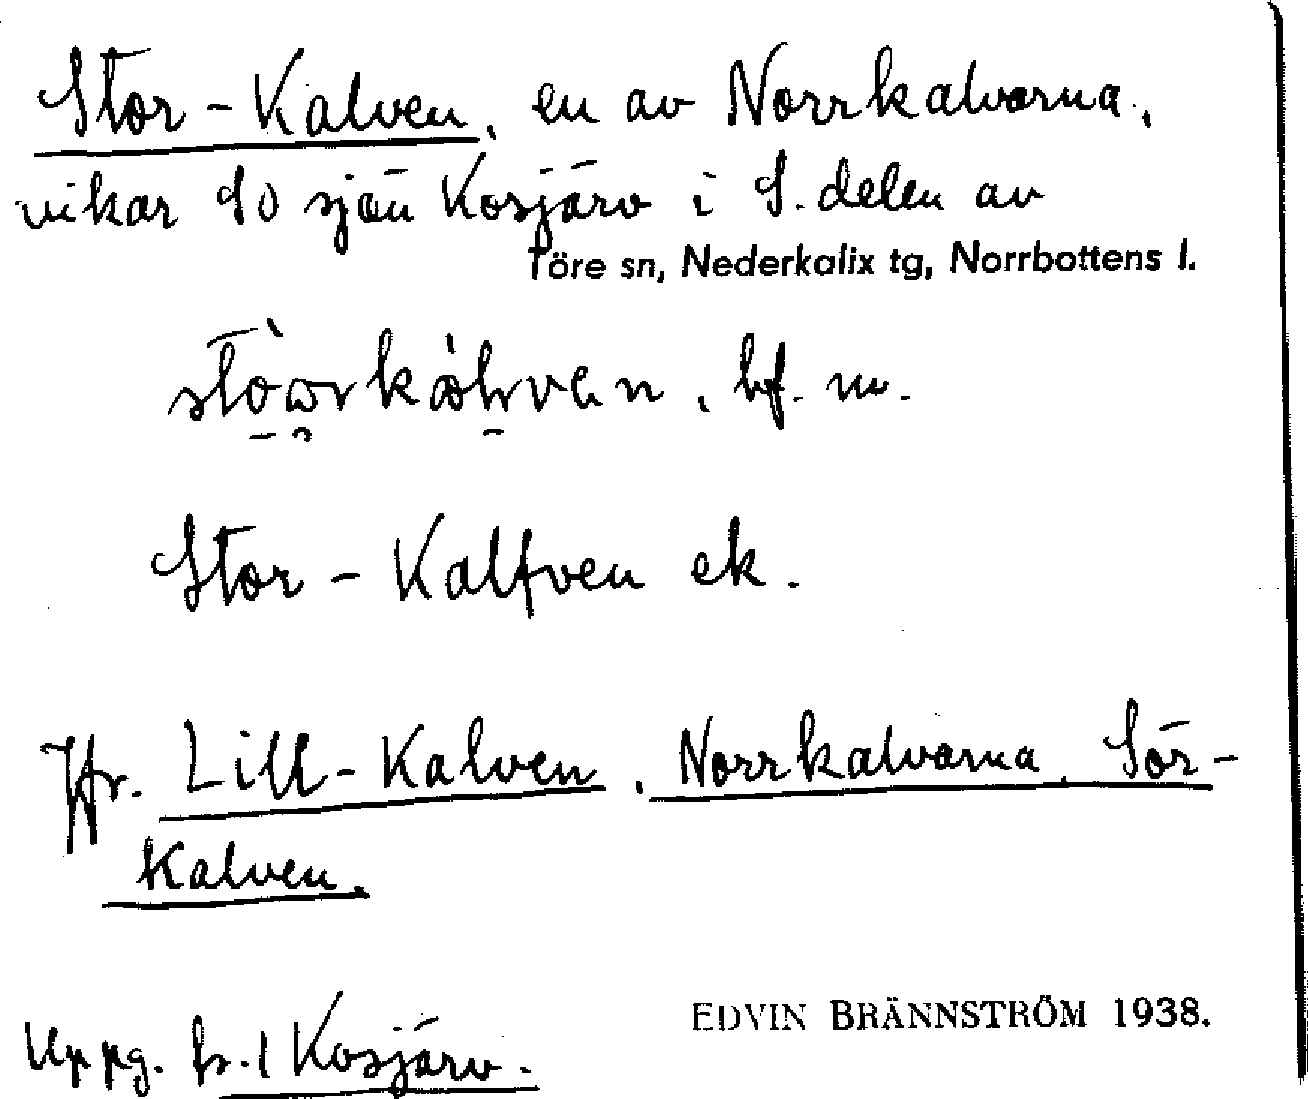 Stor-Kalven, en av Norrkalvarna,
vikar SO sjön Kosjärv i S. delen av
Töre sn, Nederkalix tg, Norrbottens l.
bf. m.
Stor-Kalfven ek.
Jfr. Lill-Kalven, Norrkalvarna, Sör-
Kalven.
EDVIN BRÄNNSTRÖM 1938.
Uppg. fr. 1 Kosjärv.